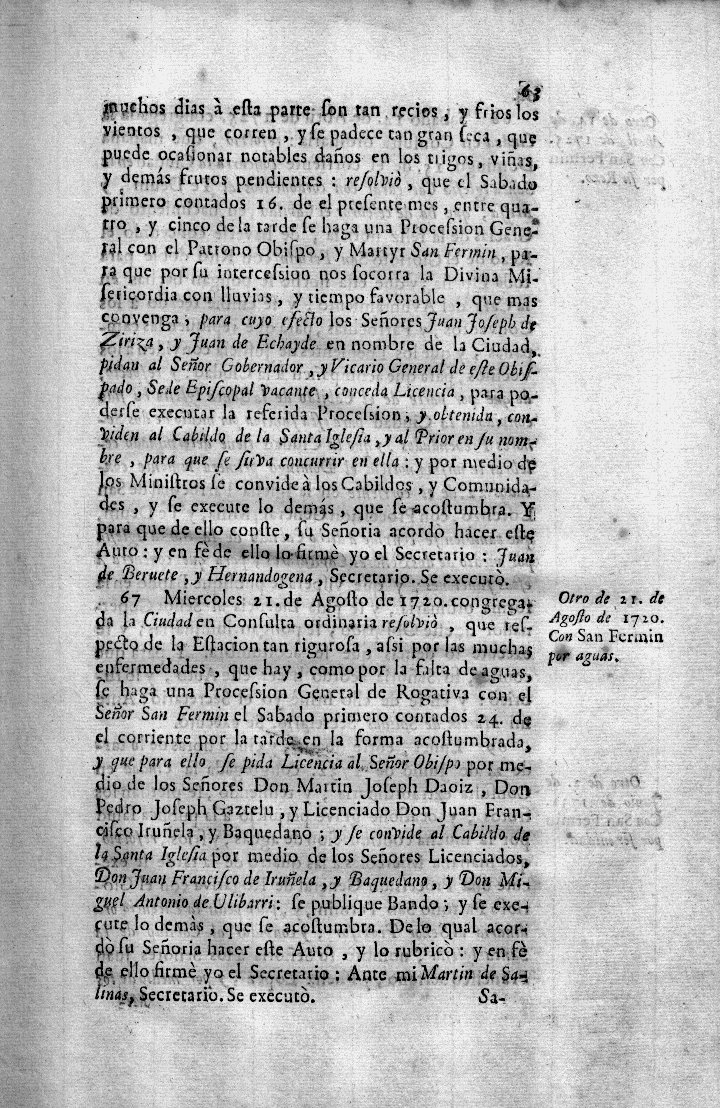 63
muchos dias à esta parte son tan recios, y frios los
vientos, que corren, y se padece tan gran seca, que
puede ocasionar notables daños en los trigos, viñas,
y demás frutos pendientes: resolviò, que el Sabado
primero contados 16. de el presente mes, entre qua-
tro, y cinco de la tarde se haga una Procession Gene-
ral con el Patrono Obispo, y Martyr San Fermin, pa-
ra que por su intercession nos socorra la Divina Mi-
sericordia con lluvias, y tiempo favorable, que mas
convenga; para cuyo efecto los Señores Juan Joseph de
Ziriza, y Juan de Echayde en nombre de la Ciudad,
pidan al Señor Gobernador, y Vicario General de este Obis-
pado, Sede Episcopal vacante, conceda Licencia, para po-
derse executar la referida Procession; y obtenida, con-
viden al Cabildo de la Santa Iglesia, y al Prior en su nom-
bre, para que se sirva concurrir en ella: y por medio de
los Ministros se convide à los Cabildos, y Comunida-
des, y se execute lo demás, que se acostumbra. Y
para que de ello conste, su Señoria acordo hacer este
Auto: y en fè de ello lo firmè yo el Secretario: Juan
de Beruete, y Hernandogena, Secretario. Se executò.
67 Miercoles 21. de Agosto de 1720. congrega-
da la Ciudad en Consulta ordinaria resolviò, que res-
pecto de la Estacion tan rigurosa, assi por las muchas
enfermedades, que hay, como por la falta de aguas,
se haga una Procession General de Rogativa con el
Señor San Fermin el Sabado primero contados 24. de
el corriente por la tarde en la forma acostumbrada,
y que para ello se pida Licencia al Señor Obispo por me-
dio de los Señores Don Martin Joseph Daoiz, Don
Pedro Joseph Gaztelu, y Licenciado Don Juan Fran-
cisco Iruñela, y Baquedano; y se convide al Cabildo de
la Santa Iglesia por medio de los Señores Licenciados,
Don Juan Francisco de Iruñela, y Baquedano, y Don Mi-
guel Antonio de Ulibarri: se publique Bando; y se exe-
cute lo demàs, que se acostumbra. De lo qual acor-
dò su Señoria hacer este Auto, y lo rubricò: y en fè
de ello firmè yo el Secretario: Ante mi Martin de Sa-
linas, Secretario. Se executò.
Sa-
Otro de 21. de
Agosto de 1720.
Con San Fermin
por aguas.